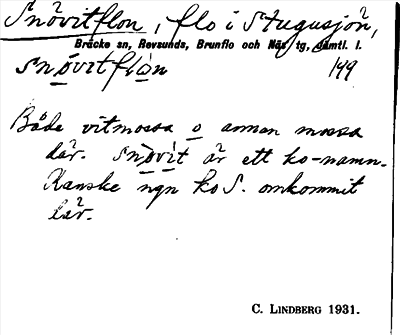 Snövitflon, flo i Stugusjön,
Bräcke sn, Revsunds, Brunflo och Näs tg, Jämtl. l.
snövitflȯn 149
Både vitmossa o annan mossa
där. Snövit är ett ko-namn.
Kanske ngn ko S. omkommit
där.
C. LINDBERG 1931.